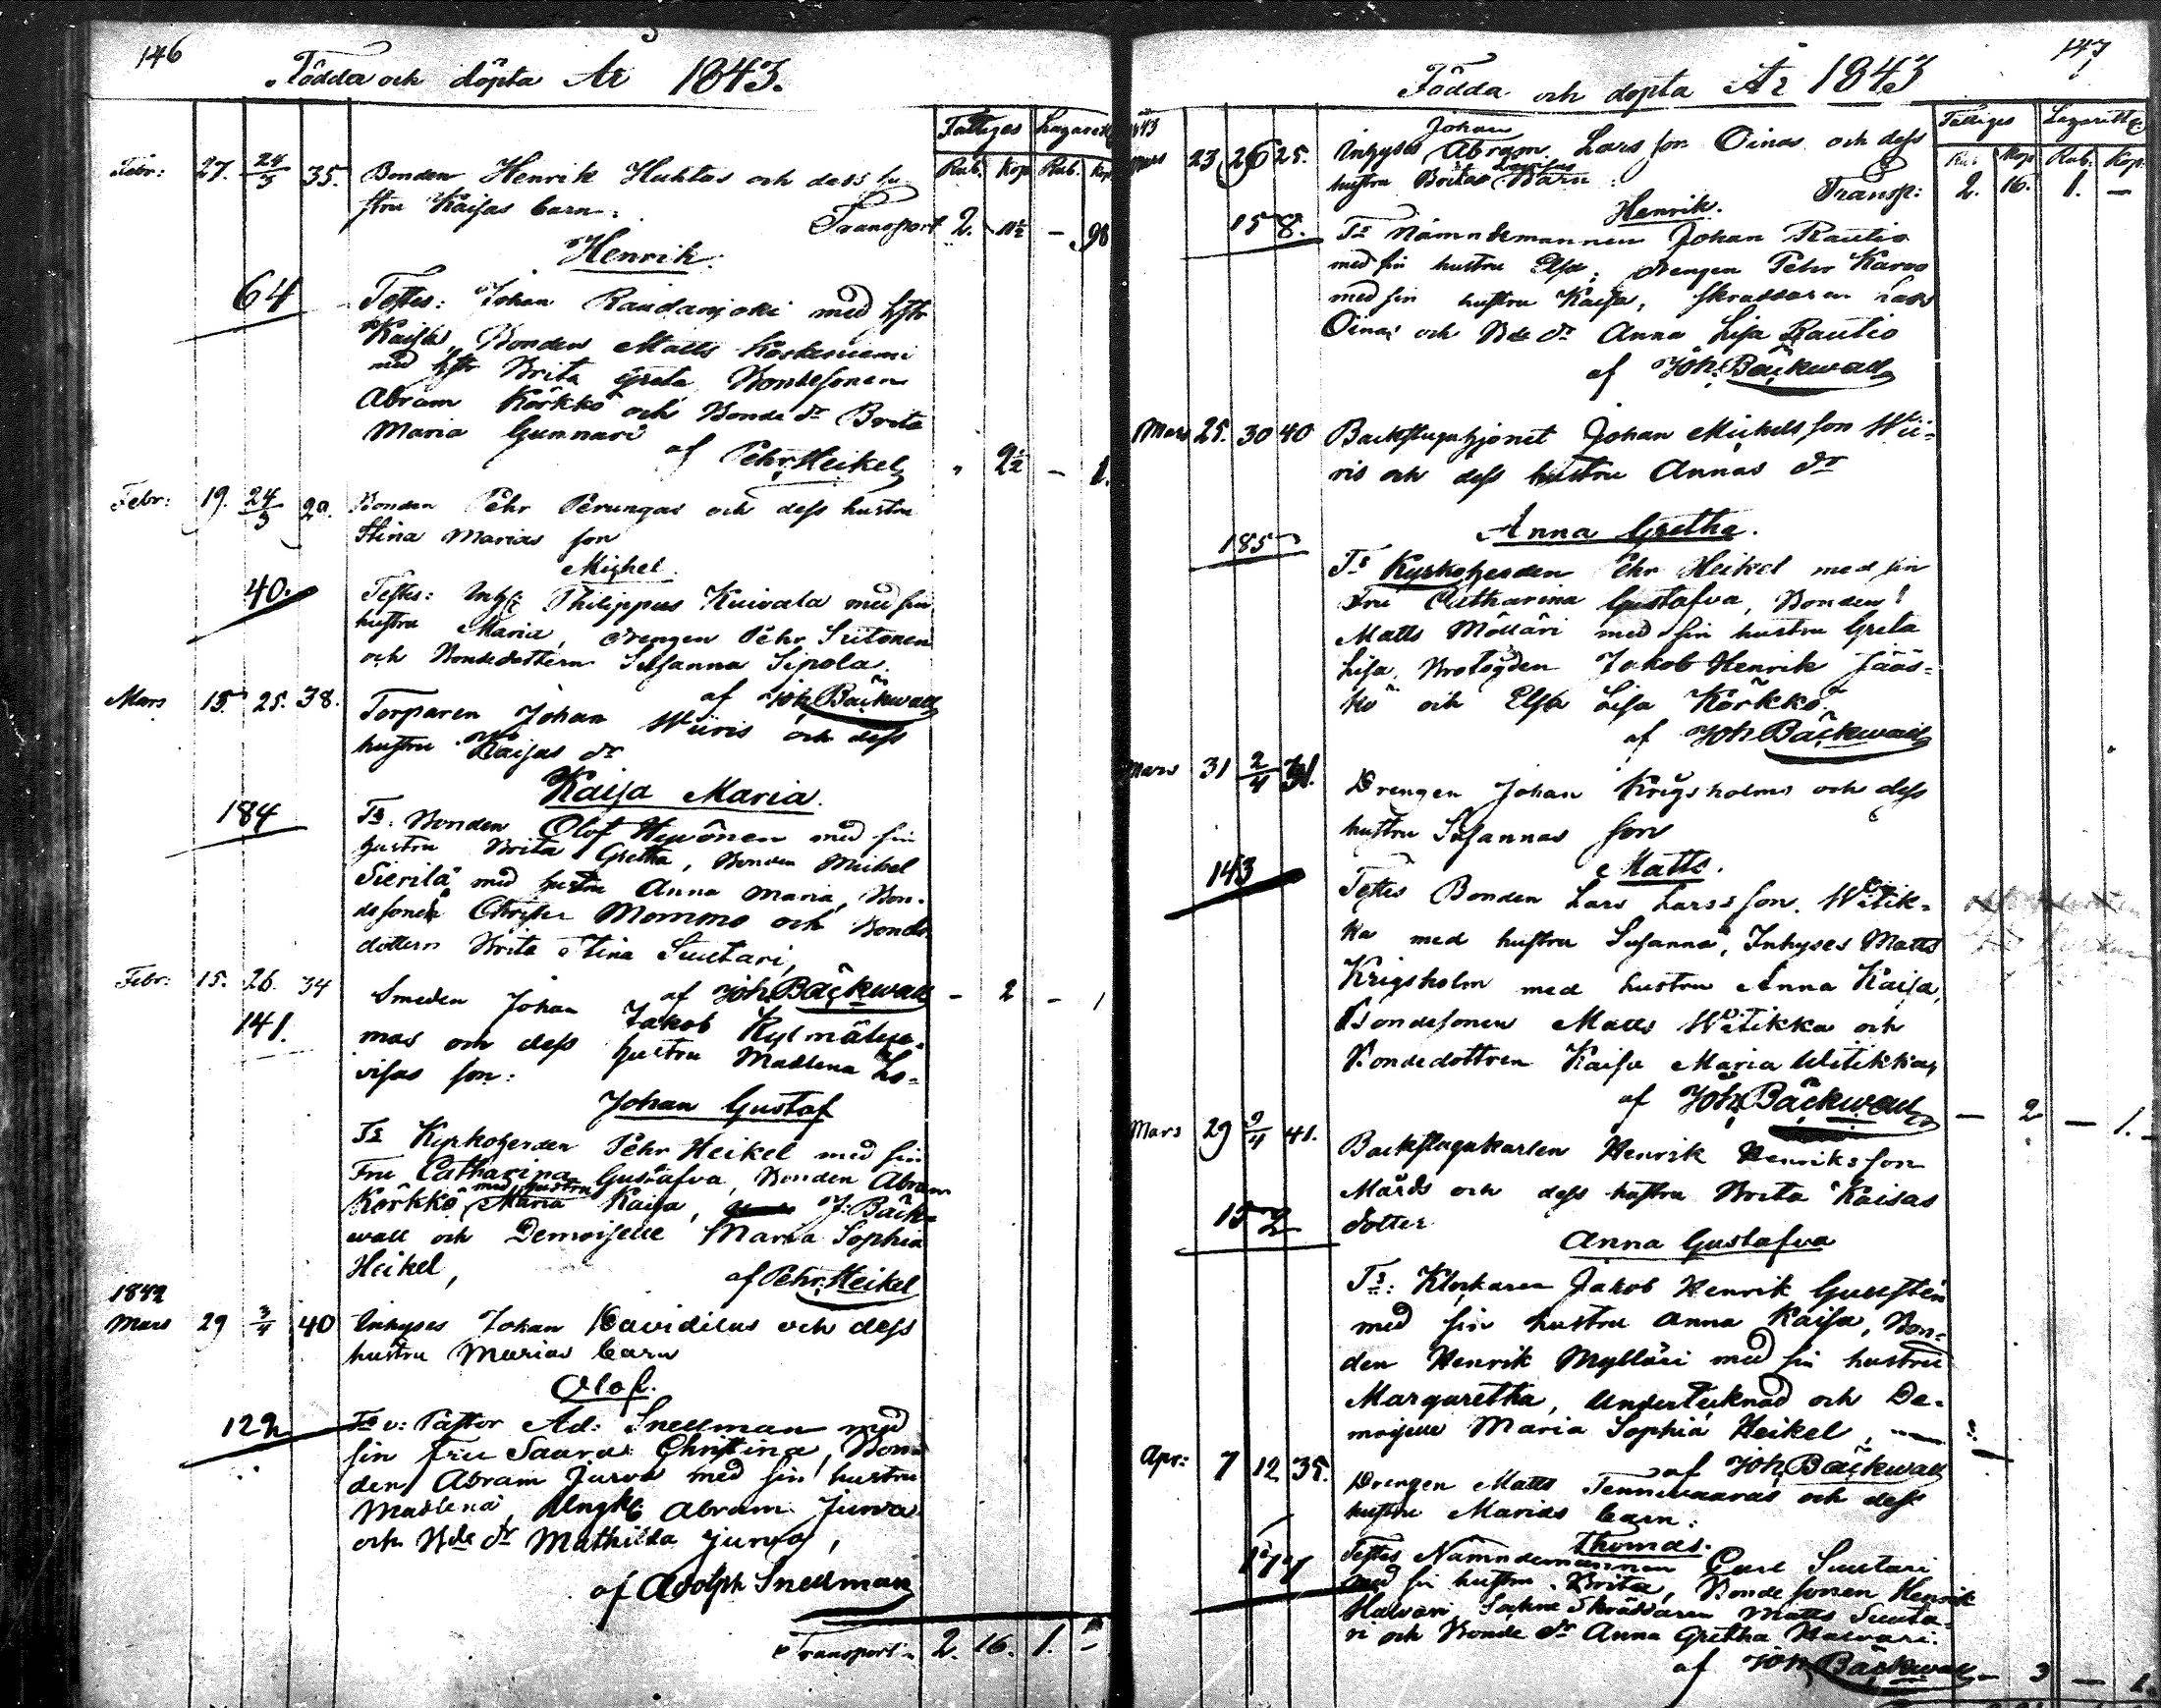 146
Födda och döpta År 1843.
Fattiges Lazarett
Rub. Kop Rub. Kop
Febr: 27. 24/3 35. Bonden Henrik Huhtas och dess hu
stru Kaisas barn.
Transport 2. 11½ — 98
Henrik.
64 Testes: Johan Raudanjoki med hstr
Kaisa, Bonden Matts Koskeniemi
med hstr Brita Greta, Bondesonen
Abram Körkkö och Bonde dr Brita
Maria Gunnari
af Pehr Heikel " 2½ — 1.
Febr: 19. 24/3 29. Bonden Pehr Perungas och dess hustru
Stina Marias son
Michel.
40. Testes: Philippus Kuivala med sin
hustru Maria, drengen Pehr Siitonen
och Bondedottern Susanna Sipola.
af Joh Bäckwall
Mars 15. 25. 38. Torparen Johan Wiiris och dess
hustru Kaisas dr
Kaisa Maria.
184 Ts: Bonden Olof Hyvönen med sin
hustru Brita Gretha, Bonden Mickel
Sierilä med hustru Anna Maria, Bon-
desonen Christer Mommo och Bonde
dottern Brita Stina Suutari,
af Joh Bäckwall — 2 — 1
Febr: 15. 26. 34 Smeden Johan Jakob Kylmälye-
141. mas och dess hustru Madlena Lo-
visas son:
Johan Gustaf
Ts Kyrkoherden Pehr Heikel med sin
Fru Catharina Gustafva, Bonden Abram
Körkkö med hustru Maria Kaisa, J: Bäck-
wall och Demoiselle Maria Sophia
Heikel,
af Pehr Heikel
1842
Mars 29 3/4 40 Inhyses Johan Davidilus och dess
hustru Marias barn
Olof.
122 Ts v: Pastor Ad: Snellman med
sin fru Saara Christina, Bon-
den Abram Jurva med sin hustru
Madlena, Ungk Abram Jurva
och Bde dr Mathilda Jurva,
af Adolph Snellman
Transport 2. 16. 1. —
147
Födda och döpta År 1843
Fattiges Lazarett
Rub Kop Rub. Kop.
1843
Mars 23 26 25. Inhyses Johan Abram Larsson Oinas och dess
hustru Britas Barn: Transp: 2. 16. 1. —
Henrik.
158. Ts Nämndemannen Johan Rautio
med sin hustru Elsa, drengen Pehr Karvo
med sin hustru Kaisa, skraddaren Lars
Oinas och Bde dr Anna Lisa Rautio
af Joh: Bäckwall
Mars 25. 30 40 Backstuguhjonet Johan Michelsson Wii-
ris och dess hustru Annas dr
Anna Gretha.
185 Ts Kyrkoherden Pehr Heikel med sin
Fru Catharina Gustafva, Bonden
Matts Mölläri med sin hustru Greta
Lisa, Jakob Henrik Jääs-
kö och Elsa Lisa Körkkö
af Joh Bäckwall
Mars 31 2/4 31. Drengen Johan Krigsholms och dess
hustru Susannas son
Matts.
143 Testes Bonden Lars Larsson Witik-
ka med hustru Susanna, Inhyses Matts
Krigsholm med hustru Anna Kaisa,
Bondesonen Matts Witikka och
Bondedottren Kaisa Maria Witikka,
af Joh Bäckwall — 2 — 1.
Mars 29 9/4 41. Backstugukarlen Henrik Henriksson
Mårds och dess hustru Brita Kaisas
152 dotter
Anna Gustafva
Ts: Klockaren Jakob Henrik Gullstén
med sin hustru Anna Kaisa, Bon-
den Henrik Mylläri med sin hustru
Margaretha, Undertecknad och De-
moiselle Maria Sophia Heikel,
af Joh Bäckwall
Apr: 7 12 35. Drengen Matts Tennivaaras och dess
hustru Marias barn:
Thomas.
177 Testes Nämndemannen Carl Suutari
med sin hustru Brita, Bondesonen Henrik
Halvari, Sockne Skräddaren Matts Suuta-
ri och Bonde dr Anna Gretha Halvari.
af Joh Bäckwall — 3 — 1.